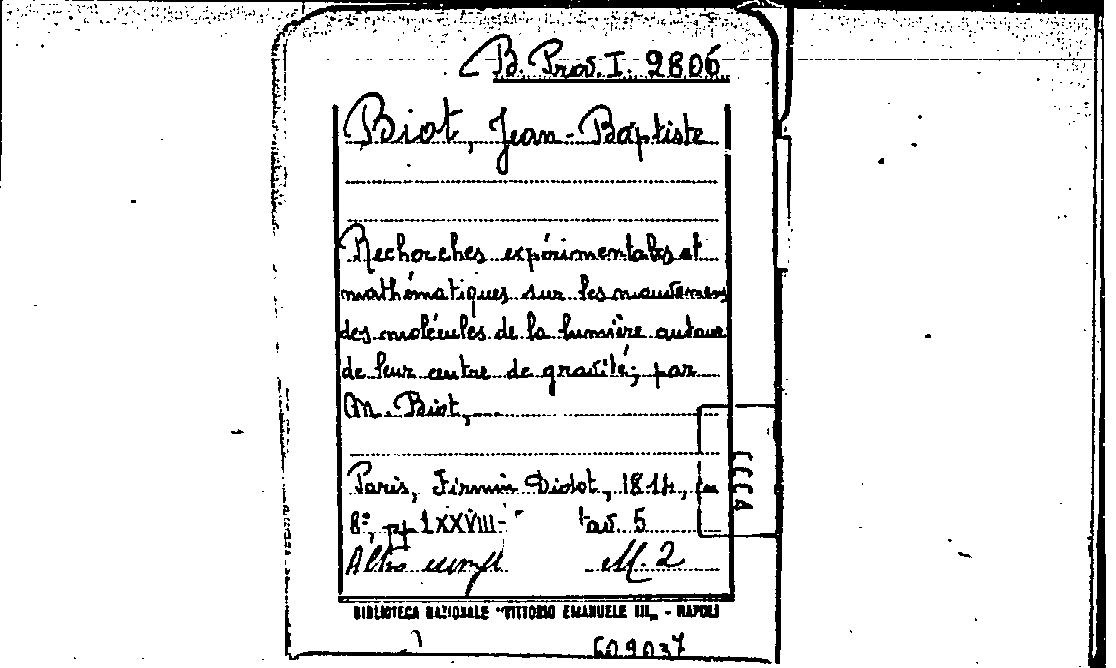 B. Prov. I. 2806
Biot, Jean-Baptiste
Recherches expérimentales et
mathématiques sur les mouvemens
des molécules de la lumière autour
de leur centre de gravité; par
M. Biot,
Paris, Firmin Didot, 1814, in
8º, pp. LXXVIII- tav. 5
Altro esempl. M. 2
CCCA
BIBLIOTECA NAZIONALE "VITTORIO EMANUELE III„ - NAPOLI
609037